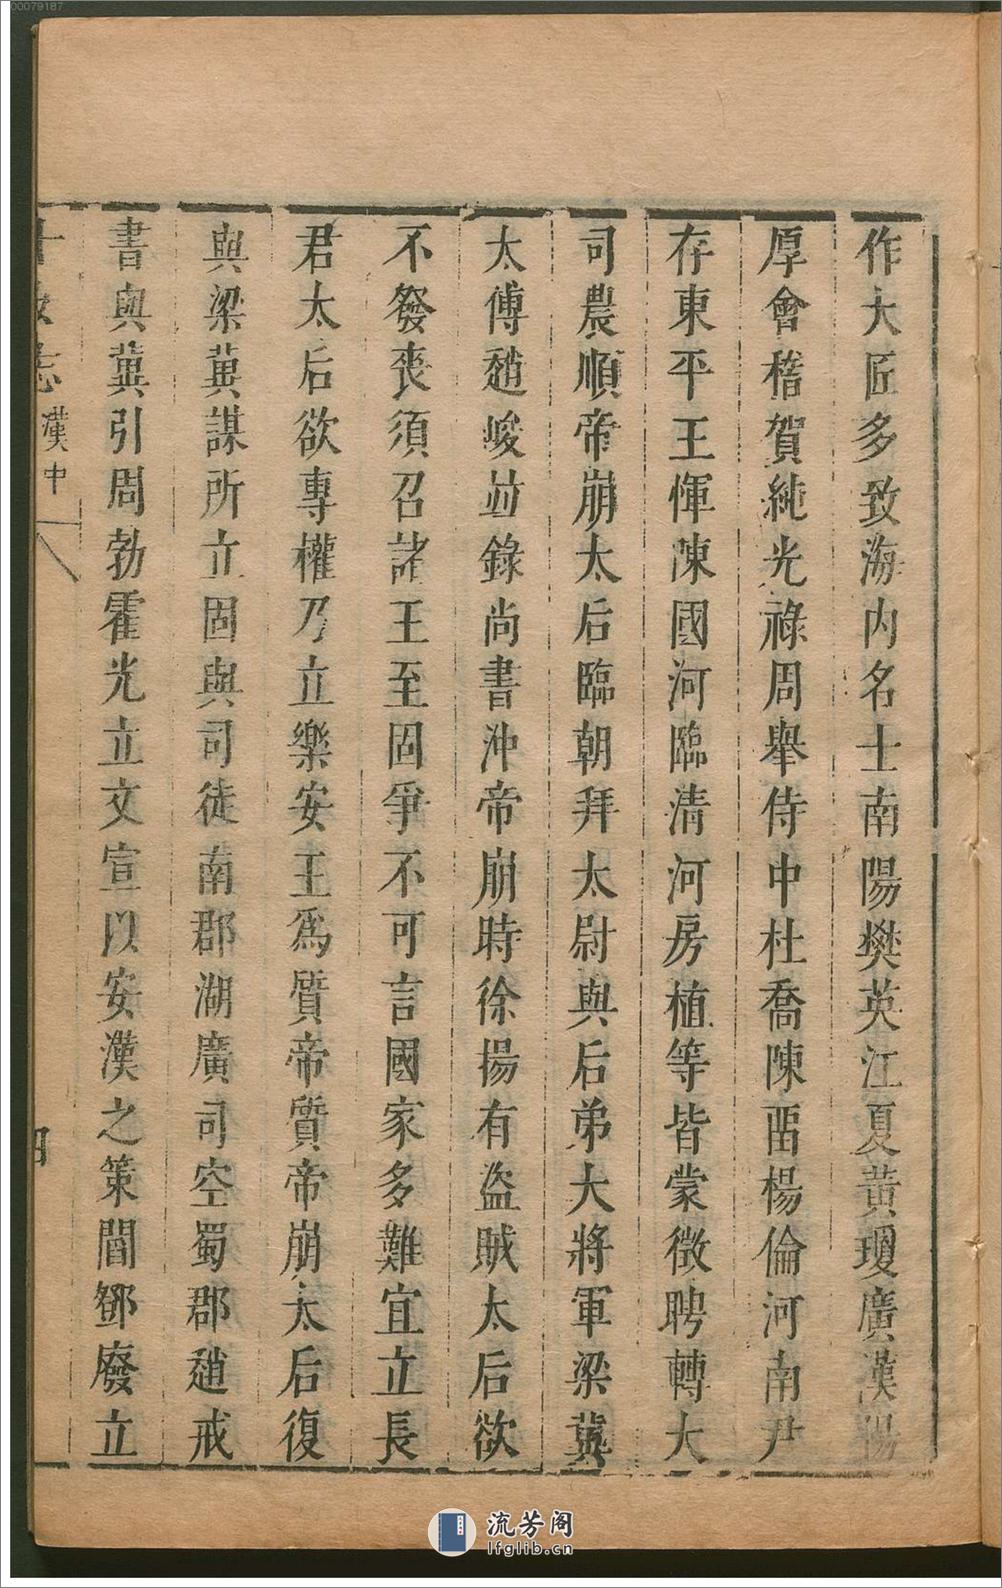 作大匠多致海内名士南陽樊英江夏黄瓊廣漢楊
厚會稽賀純光祿周舉侍中杜喬陳畱楊倫河南尹
存東平王惲陳國河臨清河房植等皆蒙徴聘轉大
司農順帝崩太后臨朝拜太尉與后弟大將軍梁冀
太傅趙峻並錄尚書沖帝崩時徐揚有盜賊太后欲
不發喪須召諸王至固爭不可言國家多難宜立長
君太后欲專權乃立樂安王爲質帝質帝崩太后復
與梁冀謀所立固與司徒南郡湖廣司空蜀郡趙戒
書與冀引周勃霍光立文宣以安漢之策閻鄧廢立
志 漢中
四
00079187
流芳阁
lfglib.cn